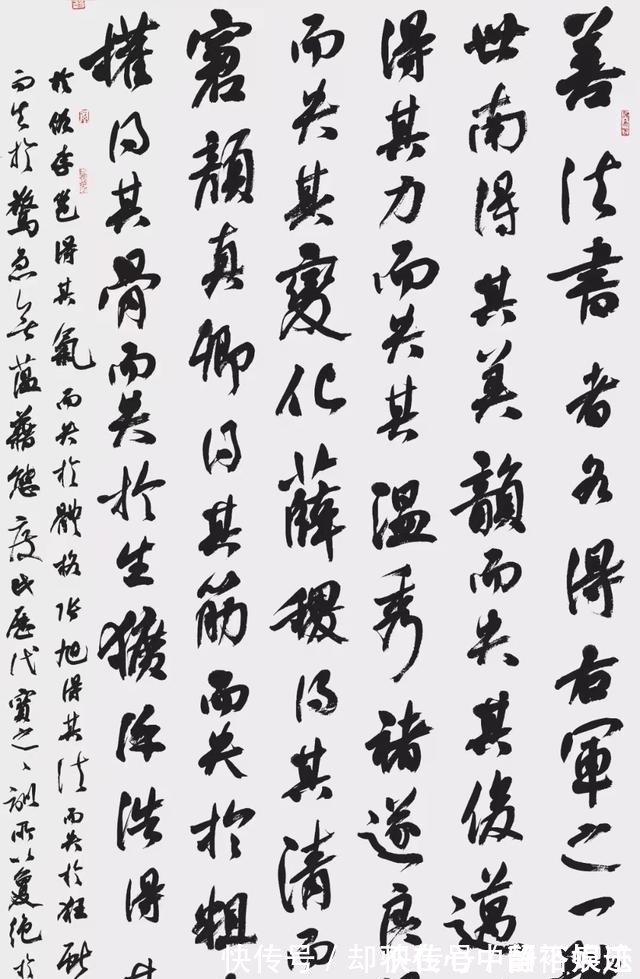 善法書者各得右軍之一
世南得其美韻而失其俊邁
得其力而失其溫秀褚遂良
而失其變化薛稷得其清而
窘顏真卿得其筋而失於粗
權得其骨而失於生獷徐浩得其
於俗李邕得其氣而失於體格張旭得其法而失於狂獻
而失於驚急無蘊藉態度此歷代寶之〻訓所以夐絕於
快传号 /